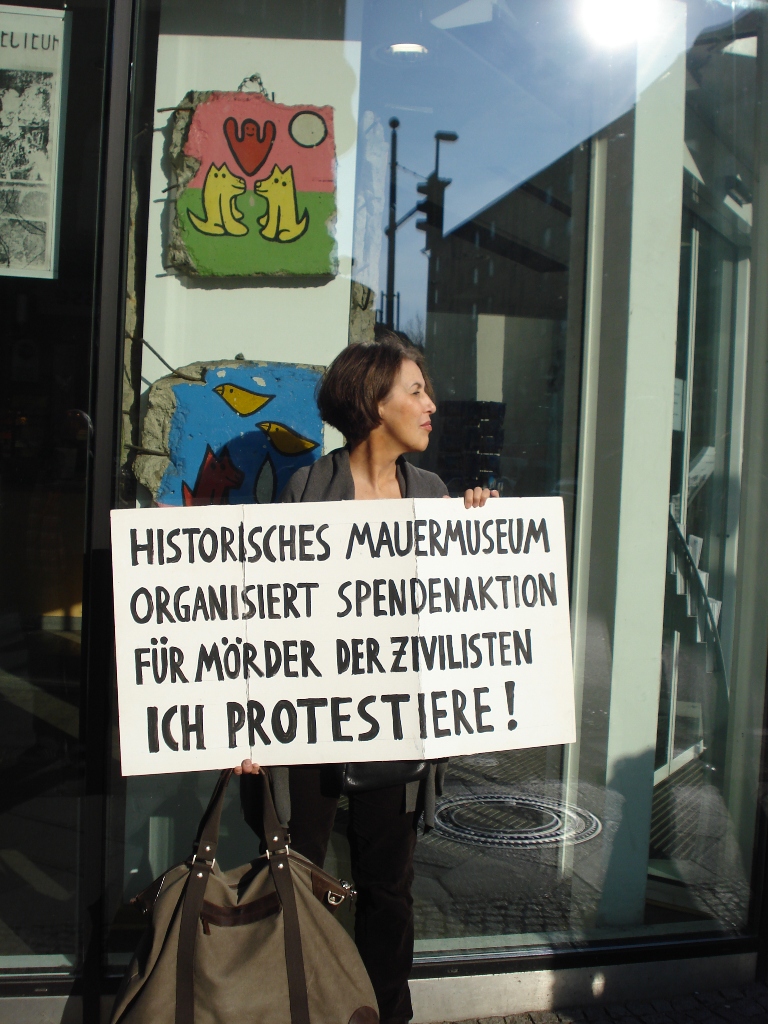 HISTORISCHES MAUERMUSEUM
ORGANISIERT SPENDENAKTION
FÜR MÖRDER DER ZIVILISTEN
ICH PROTESTIERE!